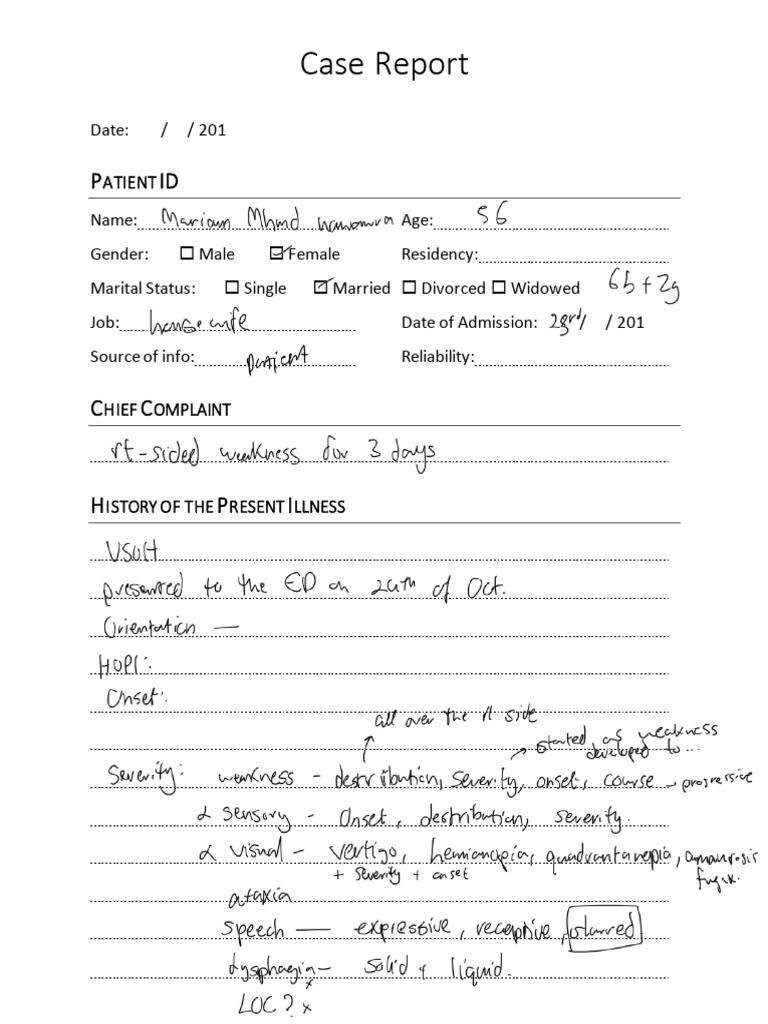 Case Report
Date: / / 201
PATIENT ID
Name: Mariam Mhmd Age: 56
Gender: ☐ Male ☑ Female Residency:
Marital Status: ☐ Single ☑ Married ☐ Divorced ☐ Widowed 6b + 2g
Job: housewife Date of Admission: 23rd/ / 201
Source of info: patient Reliability:
CHIEF COMPLAINT
rt-sided weakness for 3 days
HISTORY OF THE PRESENT ILLNESS
USOH
presented to the ED on 24th of Oct.
Orientation —
HOPI:
Onset:
all over the rt side
→ started as weakness
developed to ...
Severity: weakness - destribution, severity, onset, course → progressive
α sensory - Onset, destribution, severity.
α visual - vertigo, hemianopia, quadrantanopia, amaurosis
+ severity + onset fugax.
ataxia
speech — expressive, receptive, slurred
dysphagia - solid + liquid.
x
LOC? x